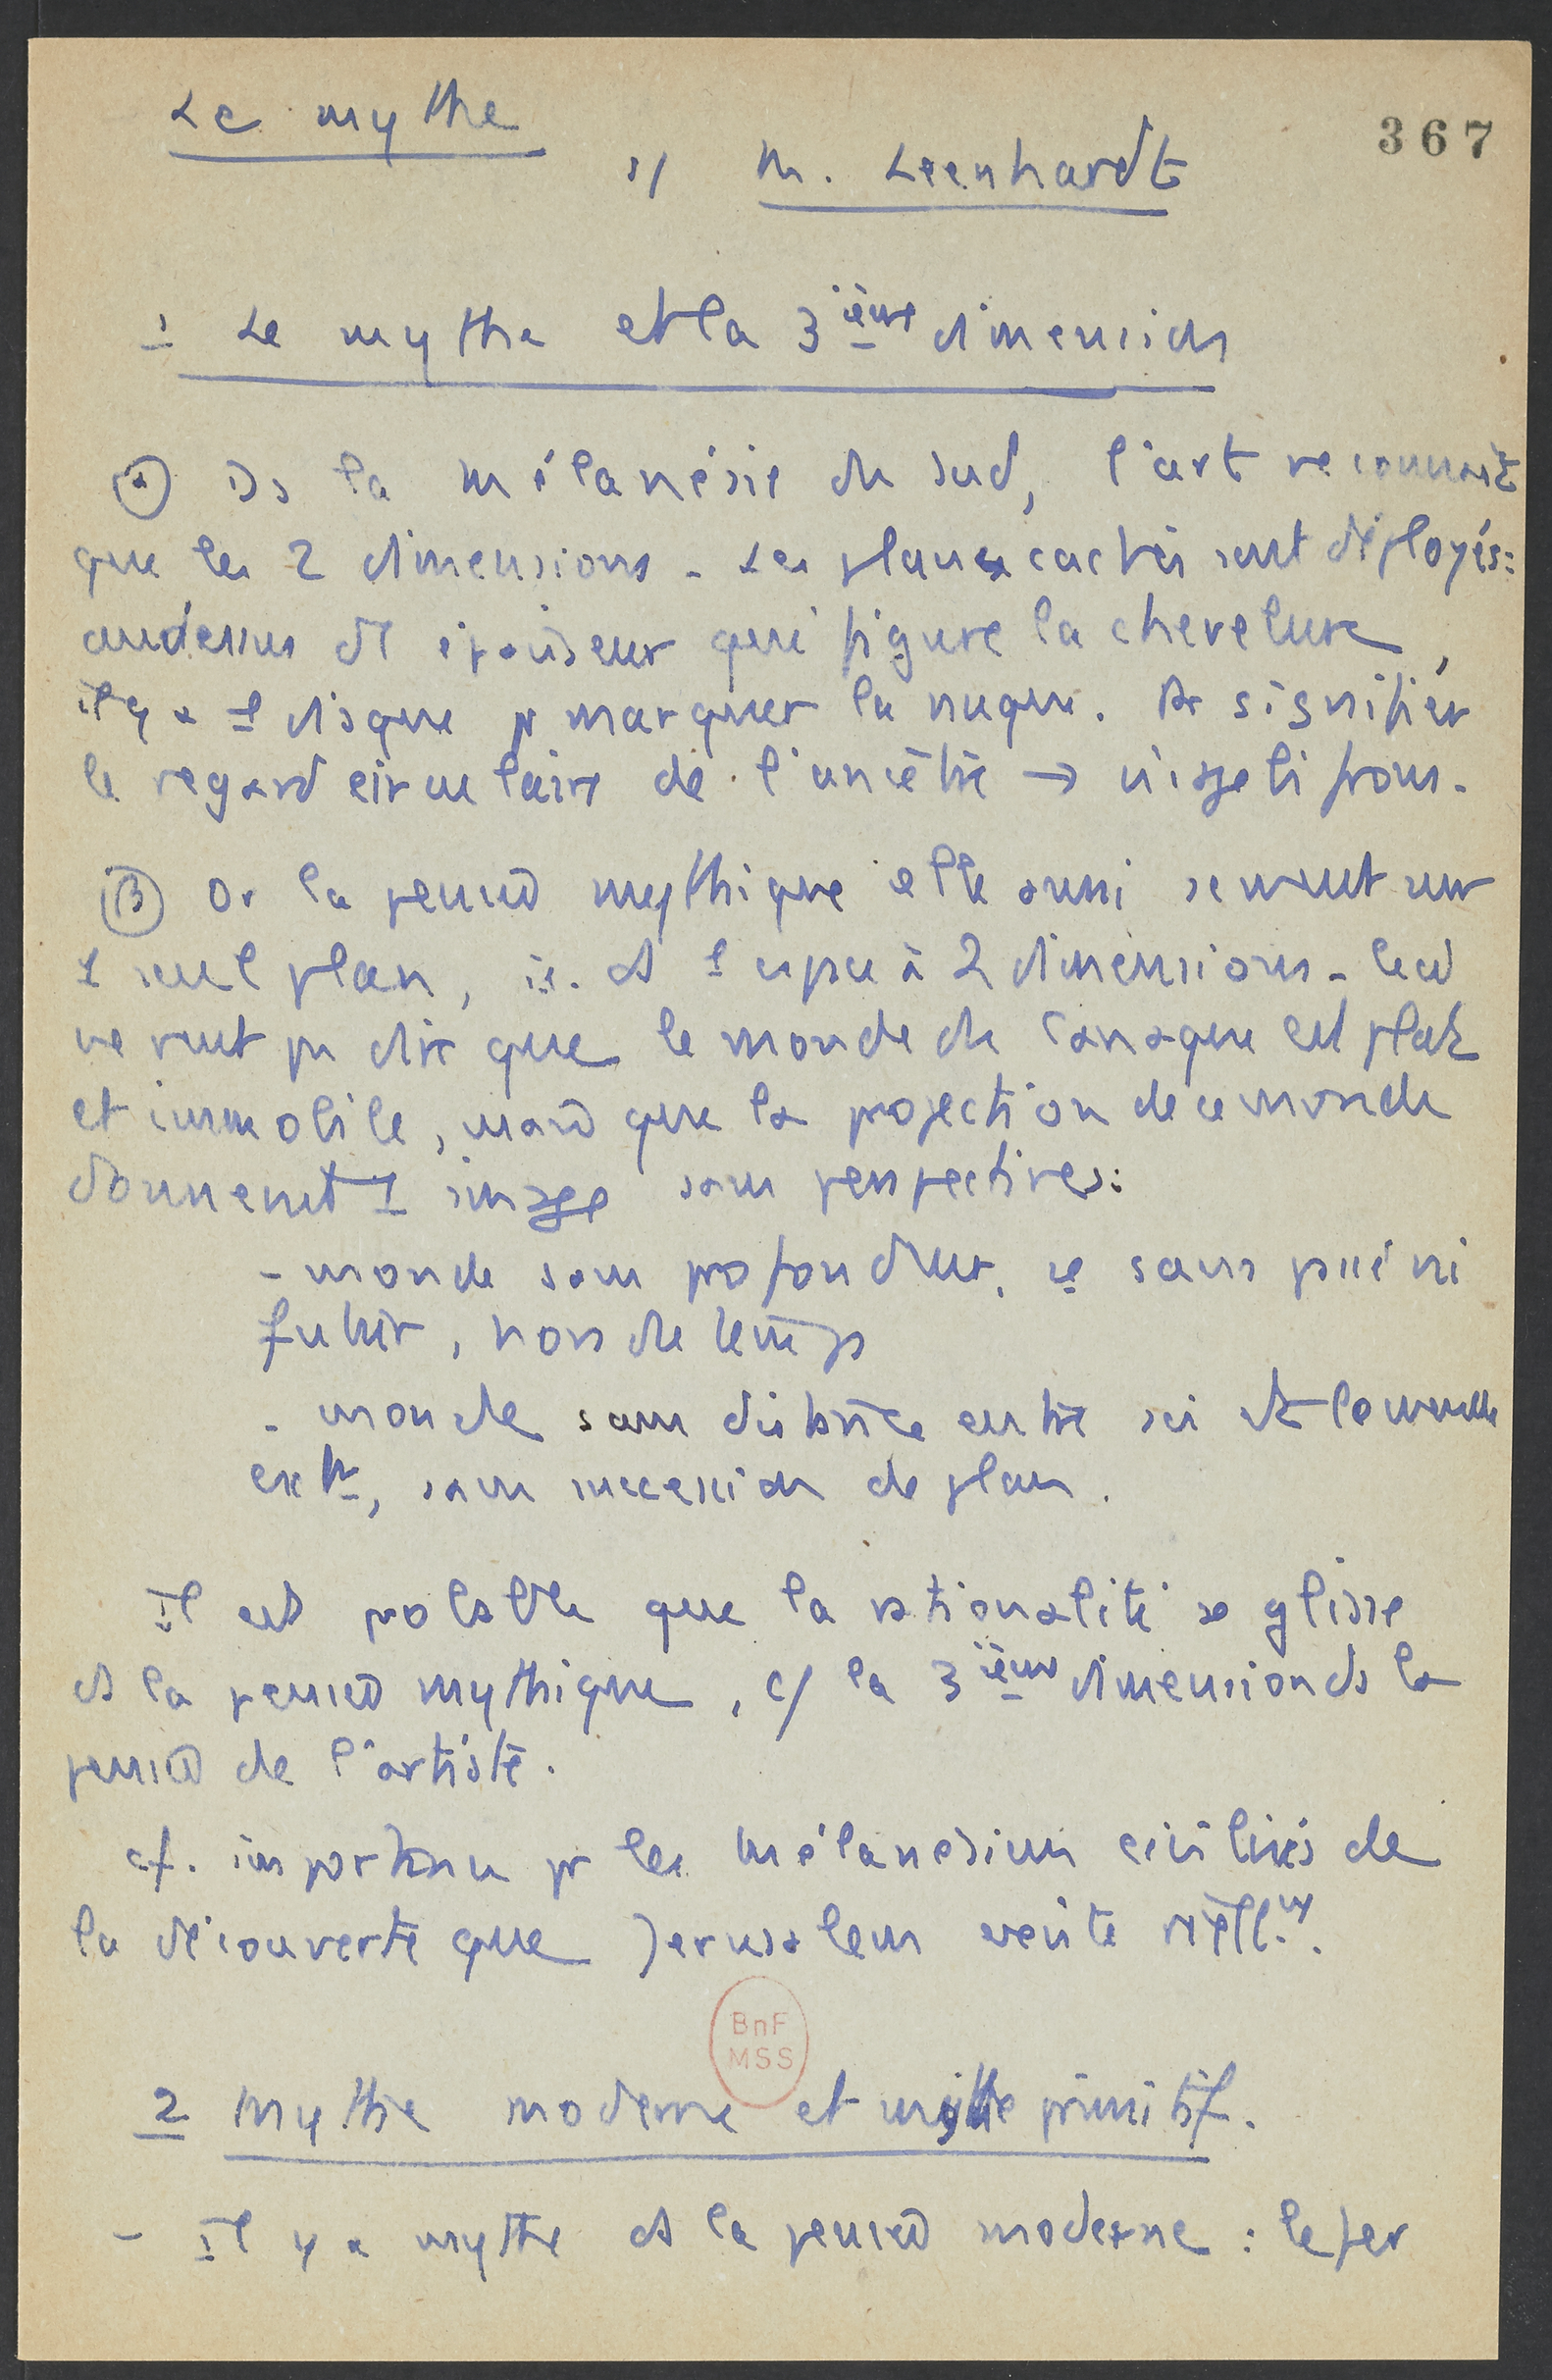 Le mythe
367
s/ M. Leenhardt
1 Le mythe et la 3ième dimension
α Ds la Mélanésie du Sud, l'art ne connaît
que les 2 dimensions. Les plans cachés sont déployés :
au dessus de épaisseur qui figure la chevelure,
il y a 1 disque pr marquer la nuque. Pr signifier
le regard circulaire de l'ancêtre →
β Or la pensée mythique elle aussi se meut sur
1 seul plan, ie. ds 1 espace à 2 dimensions. Cela
ne veut pas dire que le monde du Canaque est plat
et immobile, mais que la projection de ce monde
donnent 1 image sans perspectives :
- monde sans profondeur, ie sans passé ni
futur, hors du temps
- monde sans distance entre soi et le monde
extr, sans succession de plans.
Il est probable que la rationalité se glisse
ds la pensée mythique, c/ la 3ième dimension ds la
pensée de l'artiste.
cf. importance pr les Mélanésiens civilisés de
la découverte que Jerusalem existe réellt.
BnF
MSS
2 Mythe moderne et mythe primitif.
- Il y a mythe ds la pensée moderne : le fer